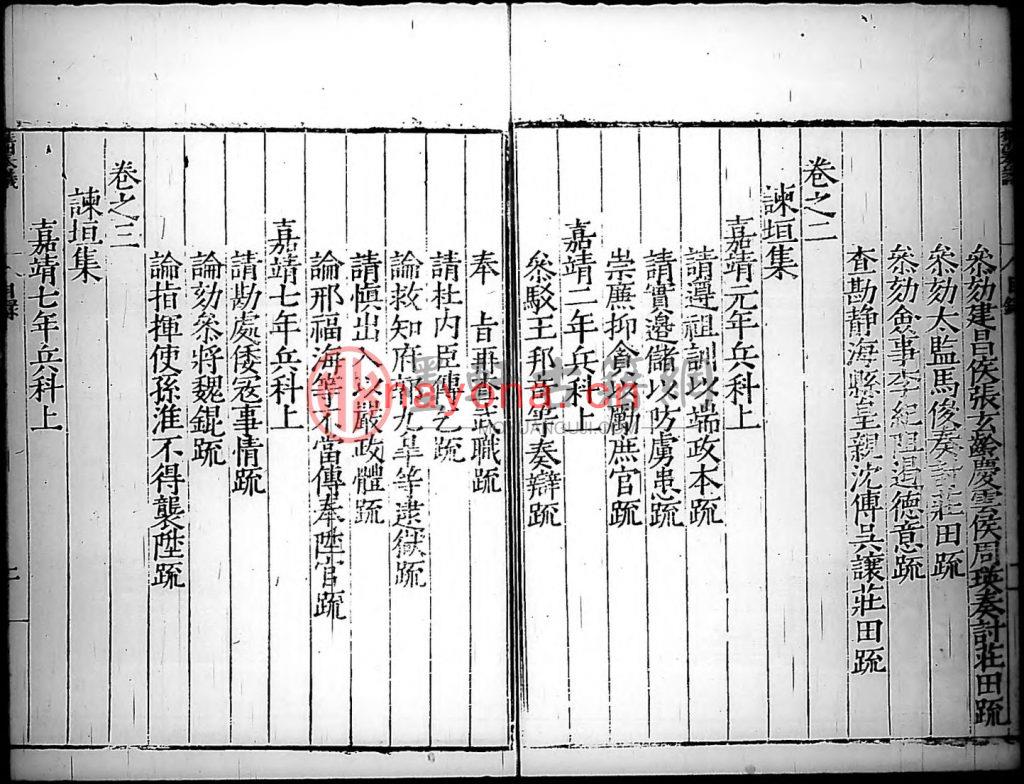 叅劾建昌侯張玄齡慶雲侯周瑛奏討莊田疏
叅劾太監馬俊奏討莊田疏
叅劾僉事李紀阻遏德意疏
查勘静海縣皇親沈傳吳讓莊田疏
卷之二
諫垣集
嘉靖元年兵科上
請遵祖訓以端政本疏
請實邊儲以防虜患疏
崇廉抑貪以勵庶官疏
嘉靖二年兵科上
叅駁王邦竒等奏辯疏
奉 旨再查武職疏
請杜内臣傳乞疏
論救知府郭九臯等逮獄疏
請慎出入以嚴政體疏
論邢福海等不當傳奉陞官疏
嘉靖七年兵科上
請勘處倭寇事情疏
論劾叅將魏錕疏
論指揮使孫淮不得襲陞疏
卷之三
諫垣集
嘉靖七年兵科上
nayona.cn